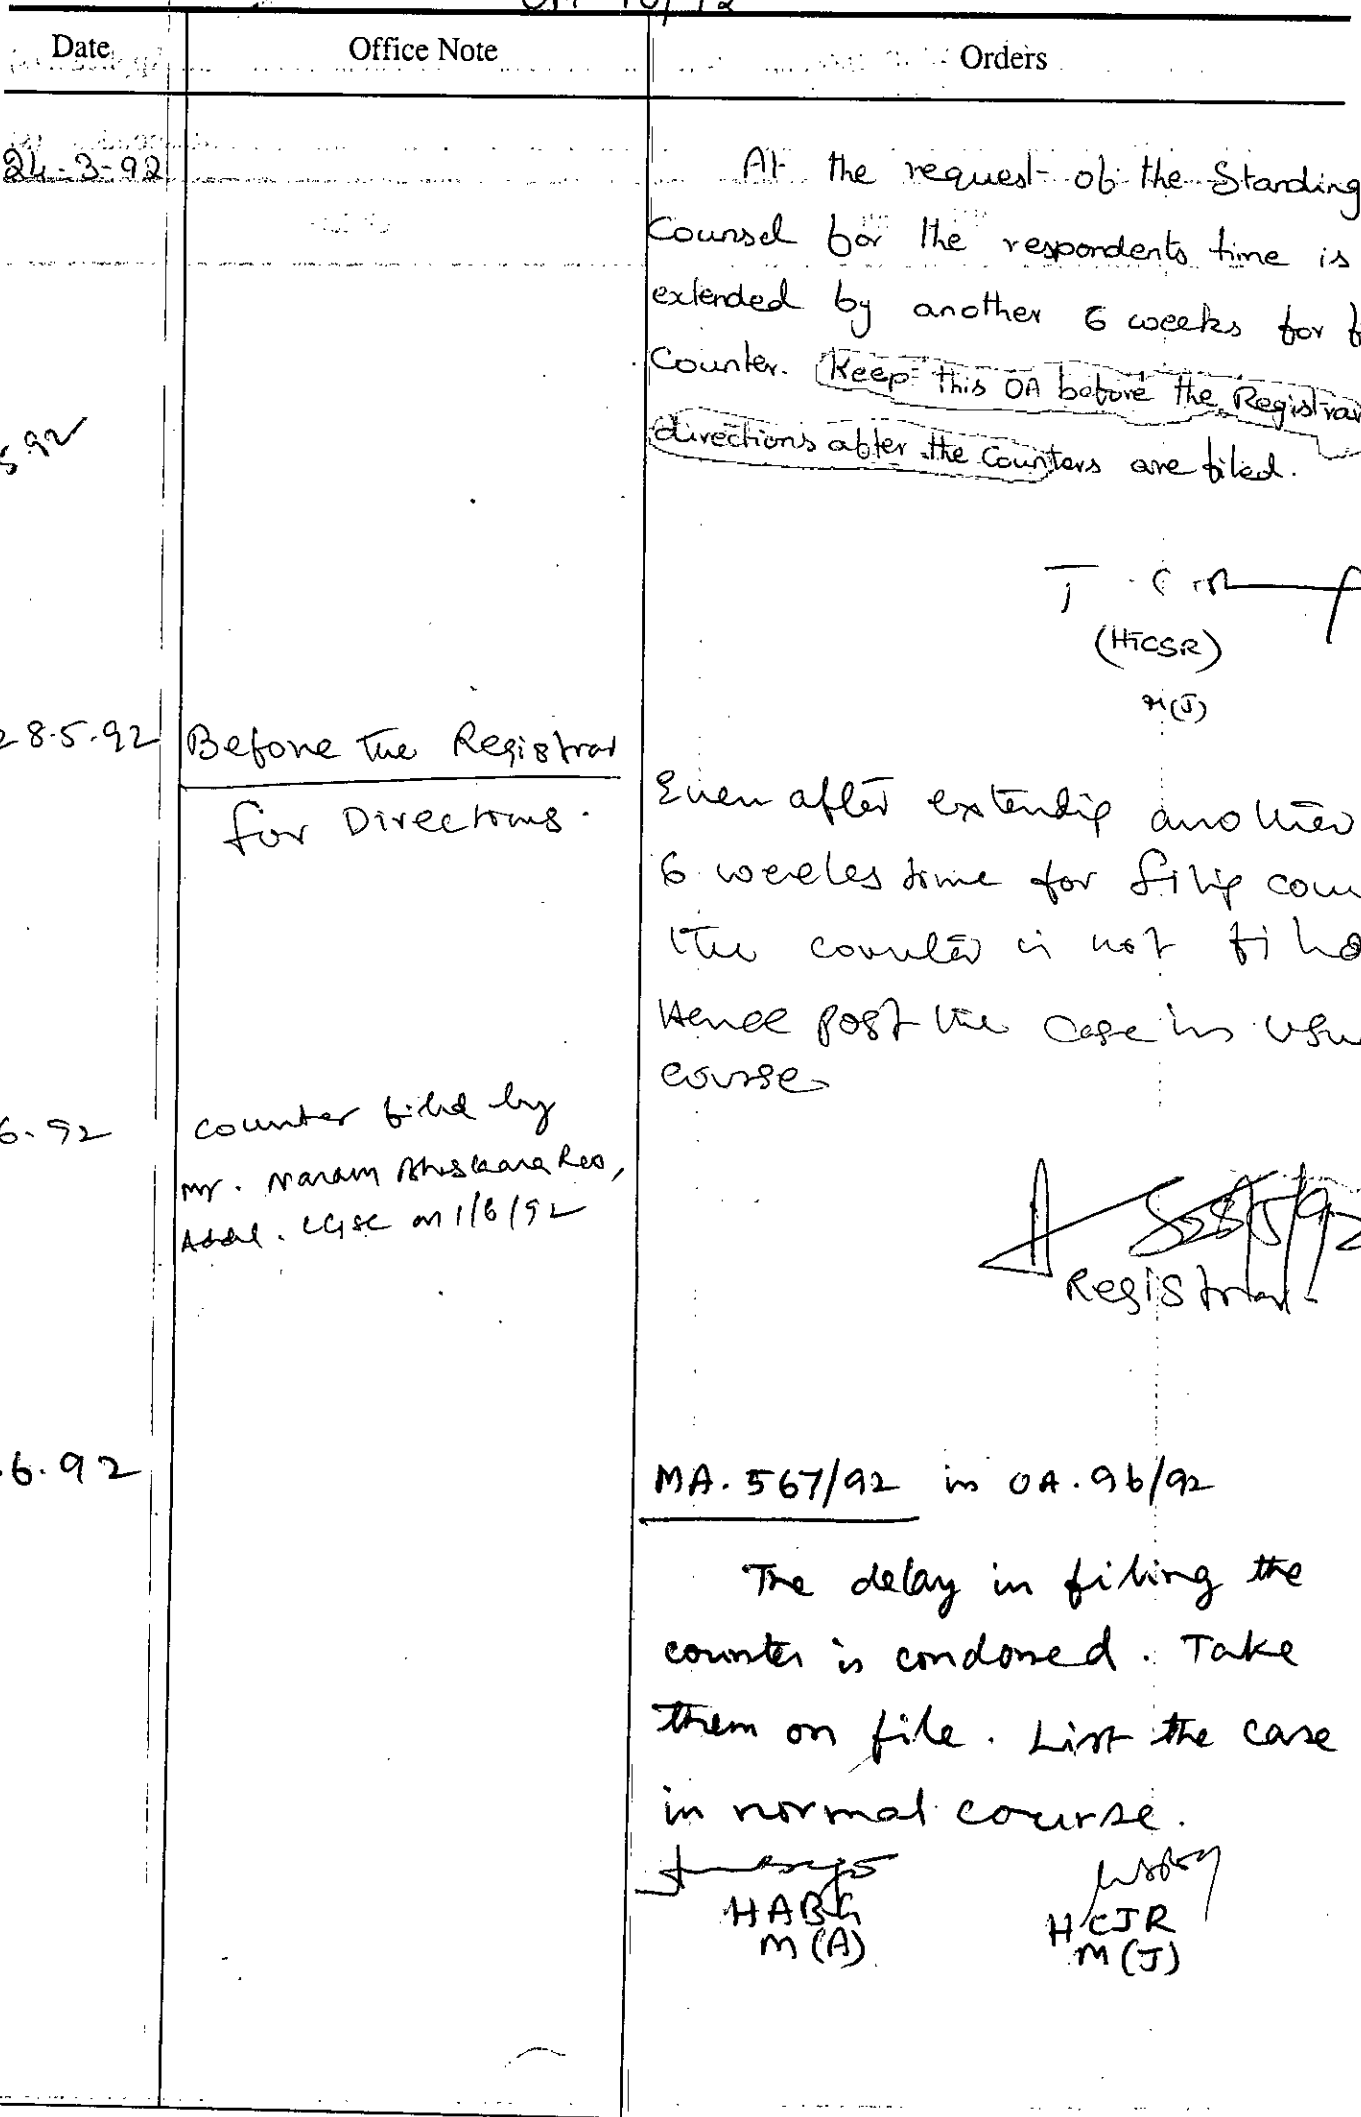 Date Office Note Orders
24-3-92
At the request of the Standing
Counsel for the respondents time is
extended by another 6 weeks for
Counter. Keep this OA before the Registrar
directions after the Counters are filed.
5.92
(HTCSR)
M(J)
28.5.92 Before the Registrar
for Directions.
Even after extending another
6 weeks time for filing
the counter is not
Hence post the case in
course
6.92 counter filed by
Mr. Naram Bhaskara Rao,
Addl. CGSC on 1/6/92
28/5/92
Registrar
.6.92
MA. 567/92 in OA. 96/92
The delay in filing the
counter is condoned. Take
them on file. List the case
in normal course.
HABG HCJR
M(A) M(J)